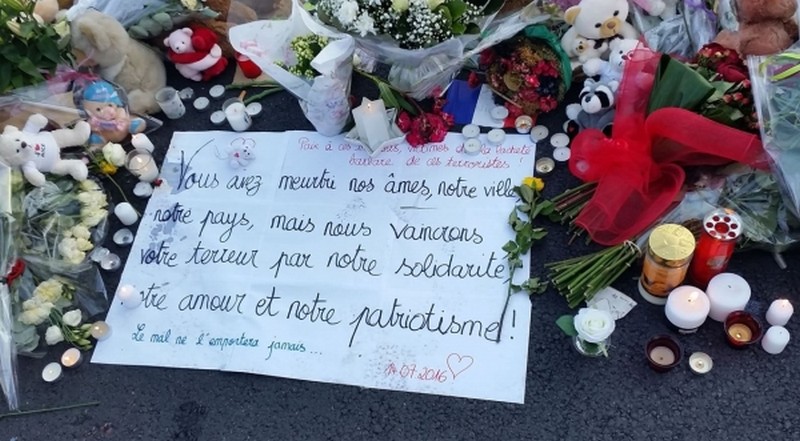 Paix à victimes de la lâcheté
barbare de ces terroristes !
Vous avez meurtri nos âmes, notre ville
notre pays, mais nous vaincrons
votre terreur par notre solidarité
notre amour et notre patriotisme !
Le mal ne l'emportera jamais...
14.07.2016